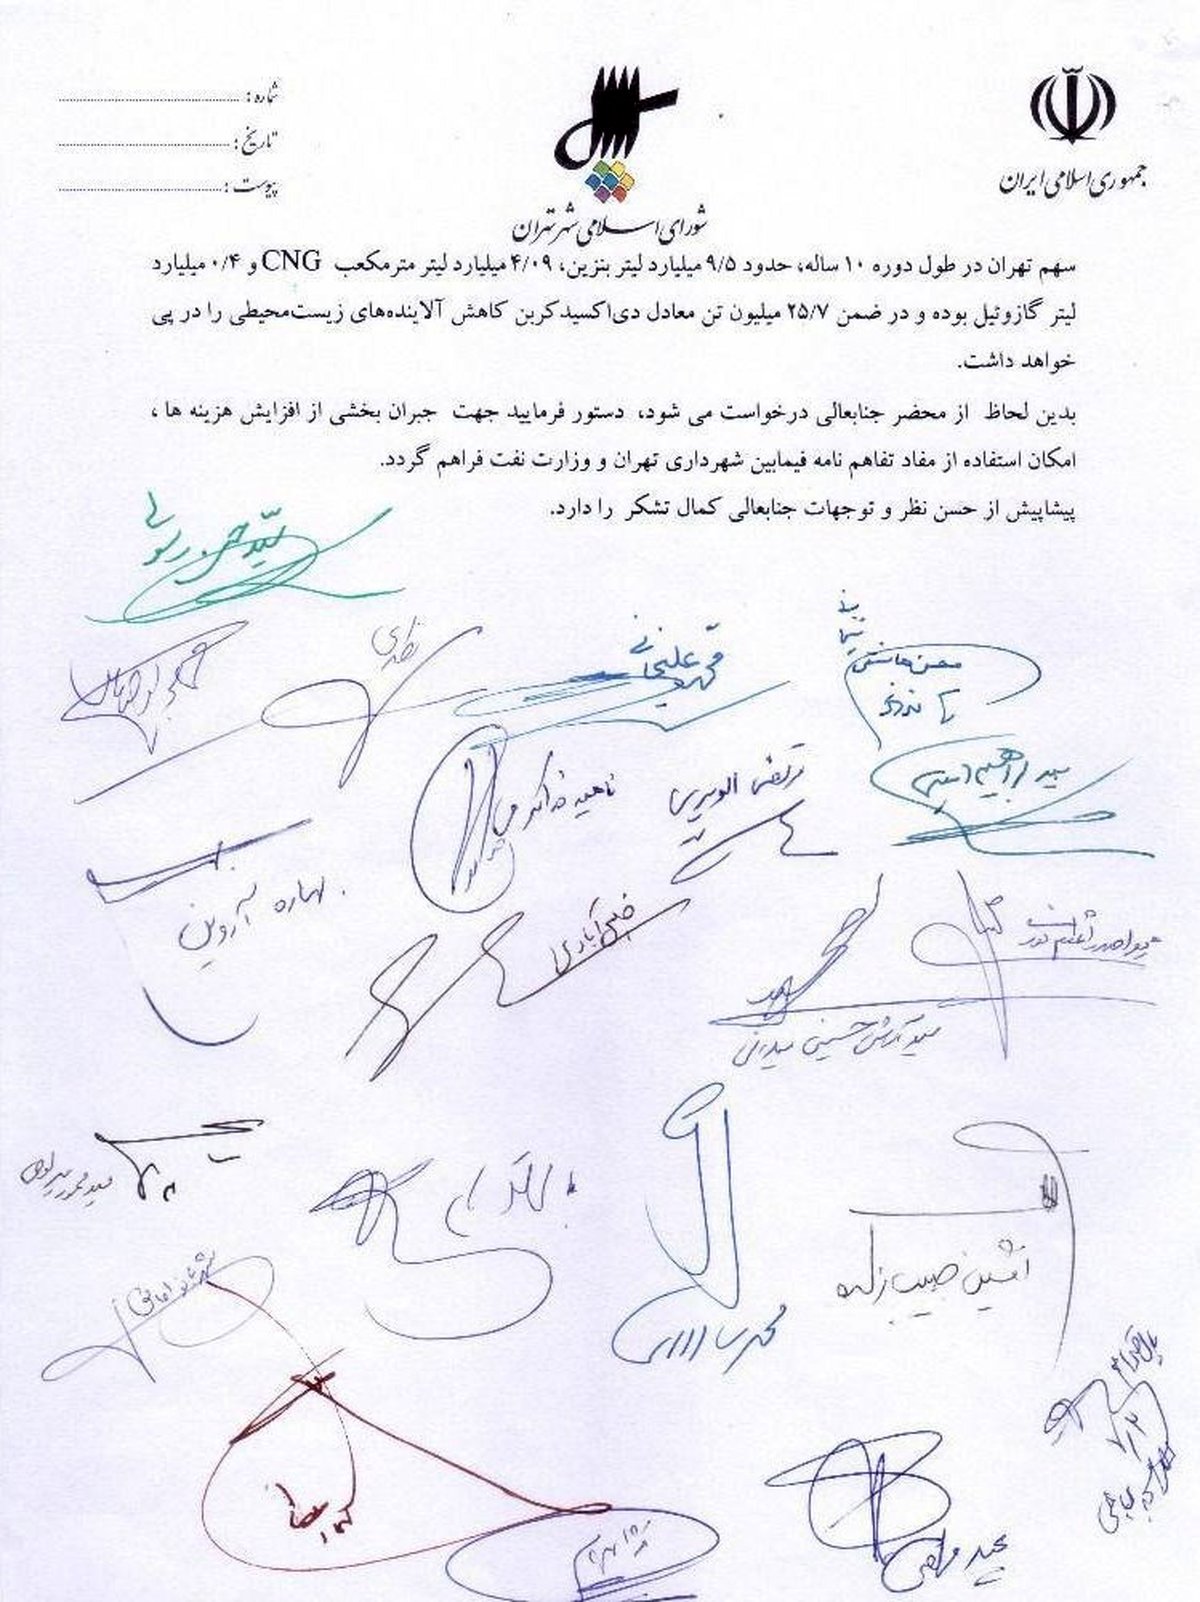 جمهوری اسلامی ایران
شورای اسلامی شهر تهران
شماره :
تاریخ :
پیوست :
سهم تهران در طول دوره ۱۰ ساله، حدود ۹/۵ میلیارد لیتر بنزین، ۴/۰۹ میلیارد لیتر مترمکعب CNG و ۰/۴ میلیارد
لیتر گازوئیل بوده و در ضمن ۲۵/۷ میلیون تن معادل دی‌اکسیدکربن کاهش آلاینده‌های زیست‌محیطی را در پی
خواهد داشت.
بدین لحاظ از محضر جنابعالی درخواست می شود، دستور فرمایید جهت جبران بخشی از افزایش هزینه ها ،
امکان استفاده از مفاد تفاهم نامه فیمابین شهرداری تهران و وزارت نفت فراهم گردد.
پیشاپیش از حسن نظر و توجهات جنابعالی کمال تشکر را دارد.
سید حسن رسولی
محمد علیخانی
محسن هاشمی
نظری
سید ابراهیم امینی
مرتضی الویری
ناهید خداکرمی
بهاره آروین
زهرا صدراعظم نوری
سید آرش حسینی میلانی
افشین حبیب زاده
محمد سالاری
سید محمود میرلوحی
شهربانو امانی
مجید فراهانی